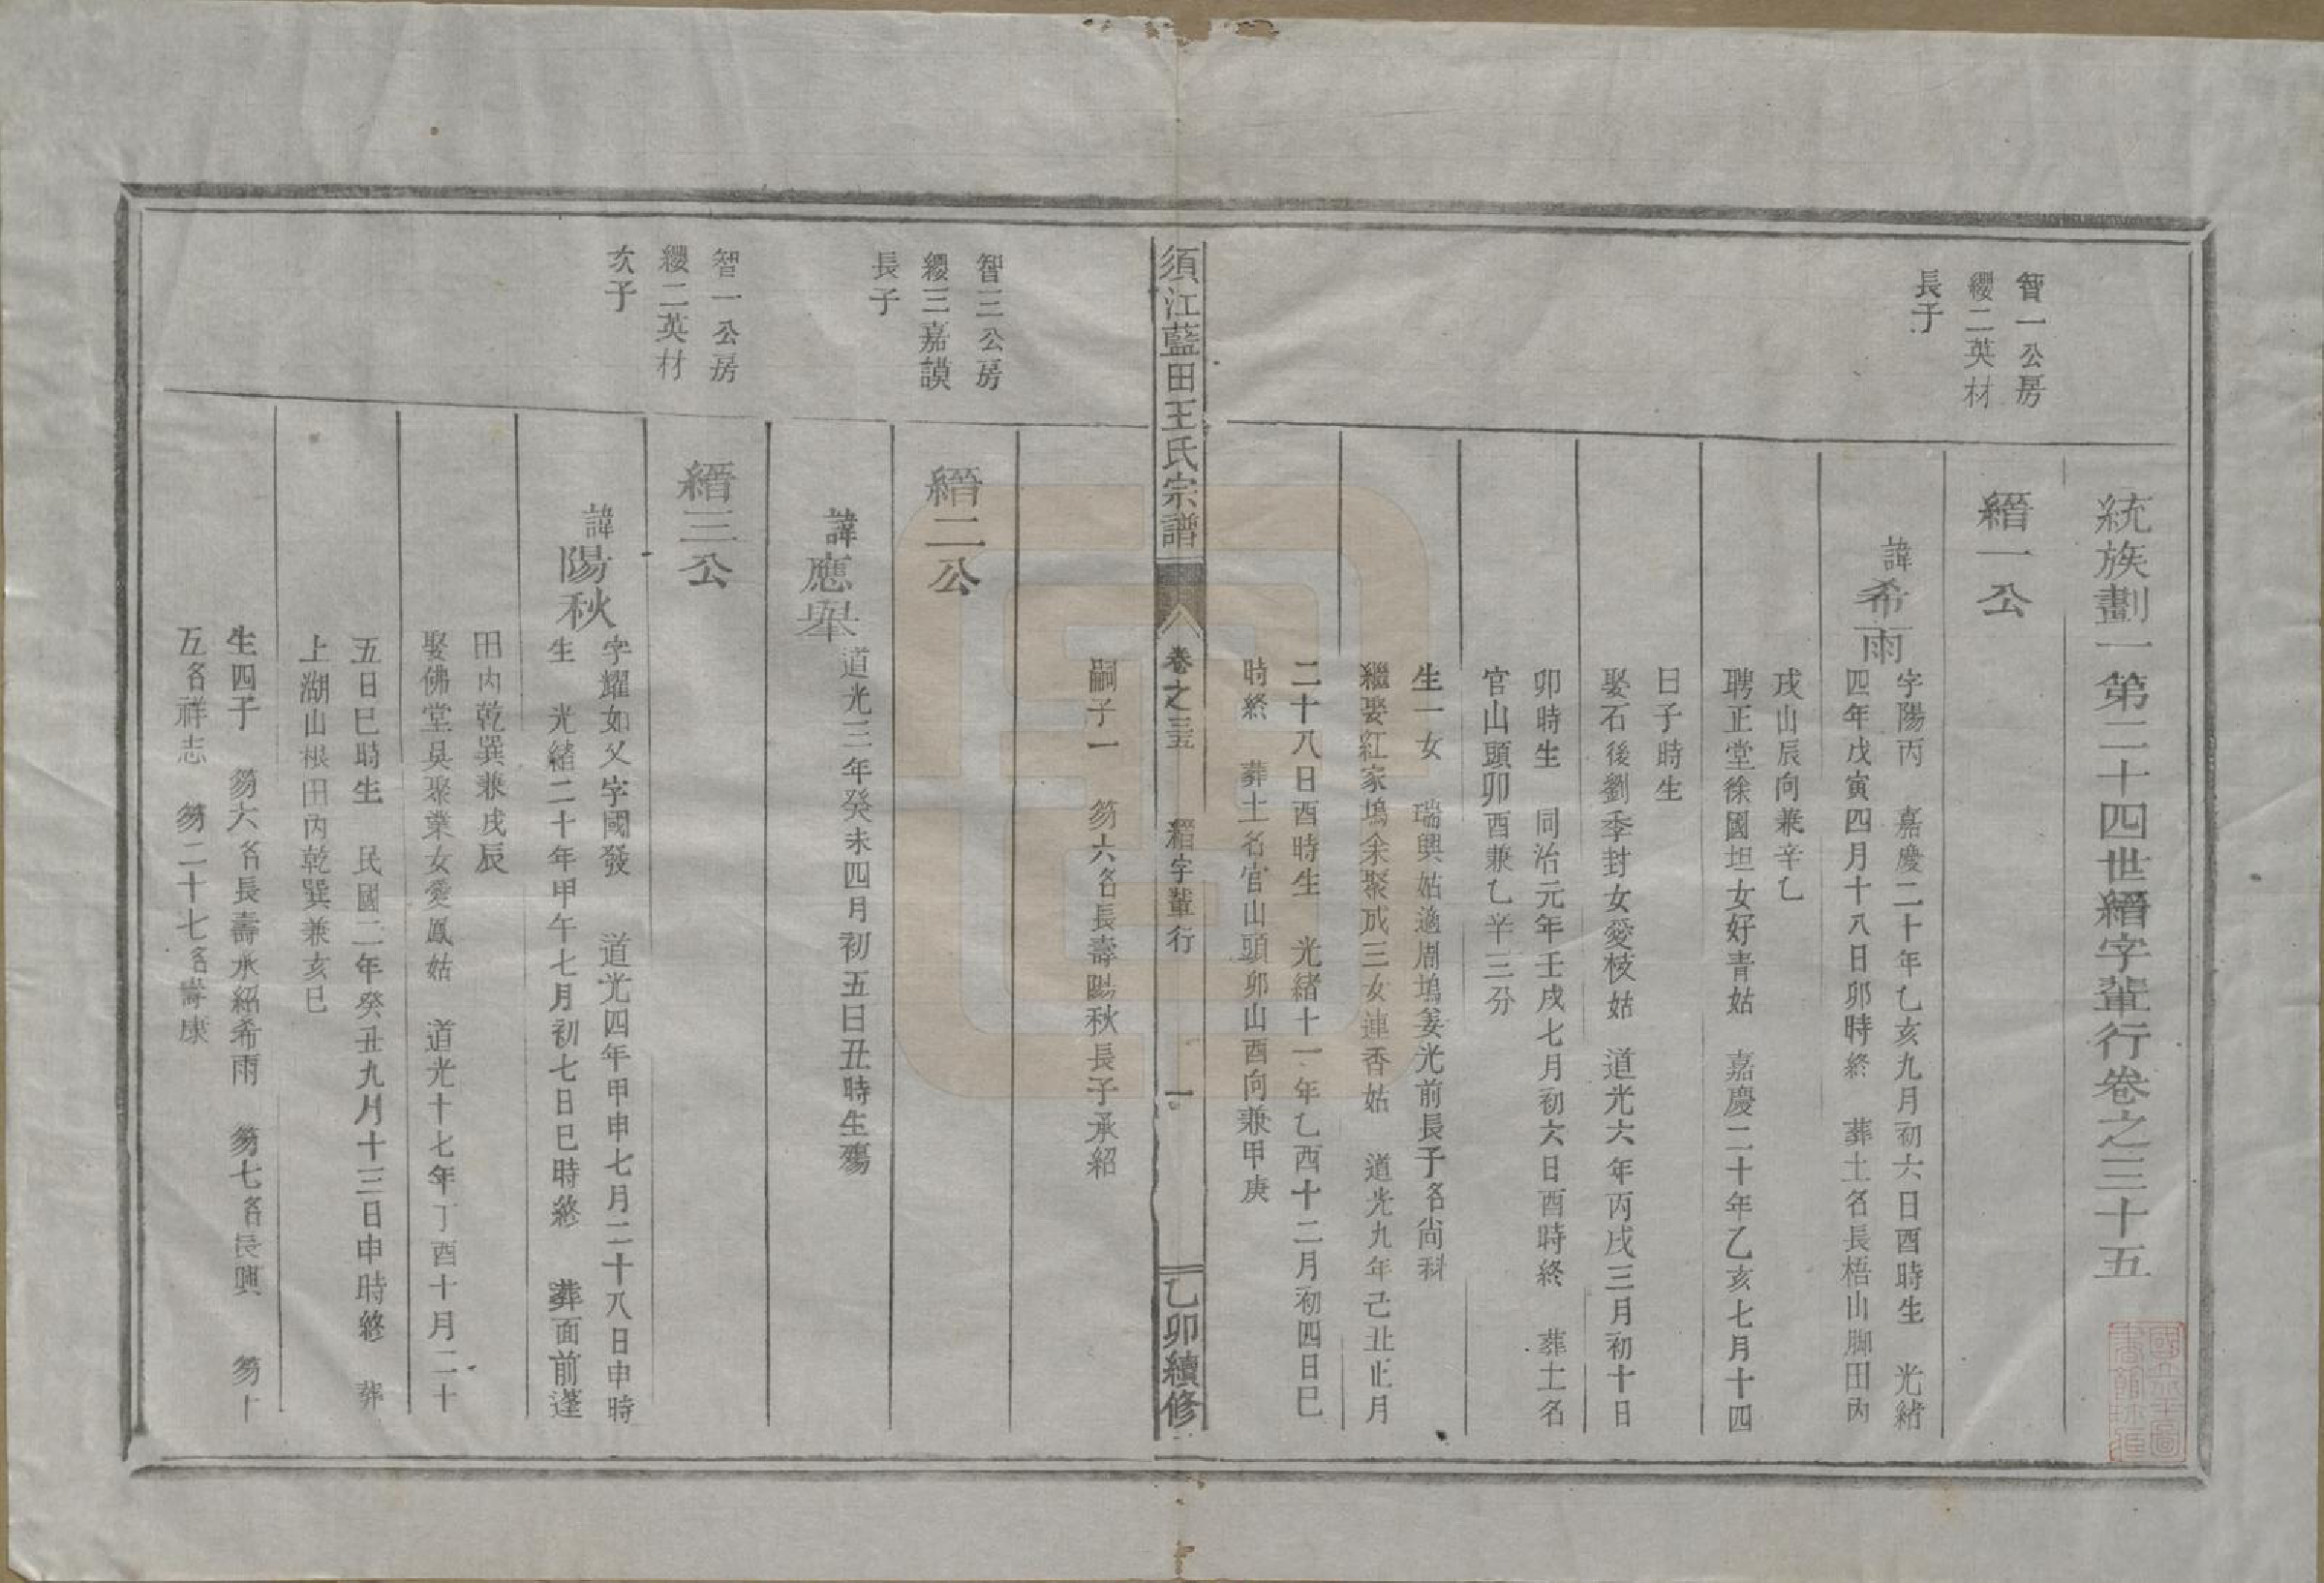 統族劃一第二十四世縉字輩行卷之三十五
智一公房
纓二英材
長子
縉一公
諱希雨
字陽丙　嘉慶二十年乙亥九月初六日酉時生　光緒
四年戊寅四月十八日卯時終　葬土名長梧山脚田內
戌山辰向兼辛乙
聘正堂徐國坦女好青姑　嘉慶二十年乙亥七月十四
日子時生
娶石後劉季封女愛枝姑　道光六年丙戌三月初十日
卯時生　同治元年壬戌七月初六日酉時終　葬土名
官山頭卯酉兼乙辛三分
生一女　瑞興姑適周塢姜光前長子名尚科
繼娶紅家塢余聚成三女連香姑　道光九年己丑正月
二十八日酉時生　光緒十一年乙酉十二月初四日巳
時終　葬土名官山頭卯山酉向兼甲庚
須江藍田王氏宗譜
卷之三五　縉字輩行　一
乙卯續修
嗣子一　芴六名長壽陽秋長子承紹
智三公房
纓三嘉謨
長子
縉二公
諱應舉
道光三年癸未四月初五日丑時生殤
智一公房
纓二英材
次子
縉三公
諱陽秋
字耀如又字國發　道光四年甲申七月二十八日申時
生　光緒二十年甲午七月初七日巳時終　葬面前蓬
田內乾巽兼戌辰
娶佛堂吳聚業女愛鳳姑　道光十七年丁酉十月二十
五日巳時生　民國二年癸丑九月十三日申時終　葬
上湖山根田內乾巽兼亥巳
生四子　芴六名長壽承紹希雨　芴七名長興　芴十
五名祥志　芴二十七名壽康